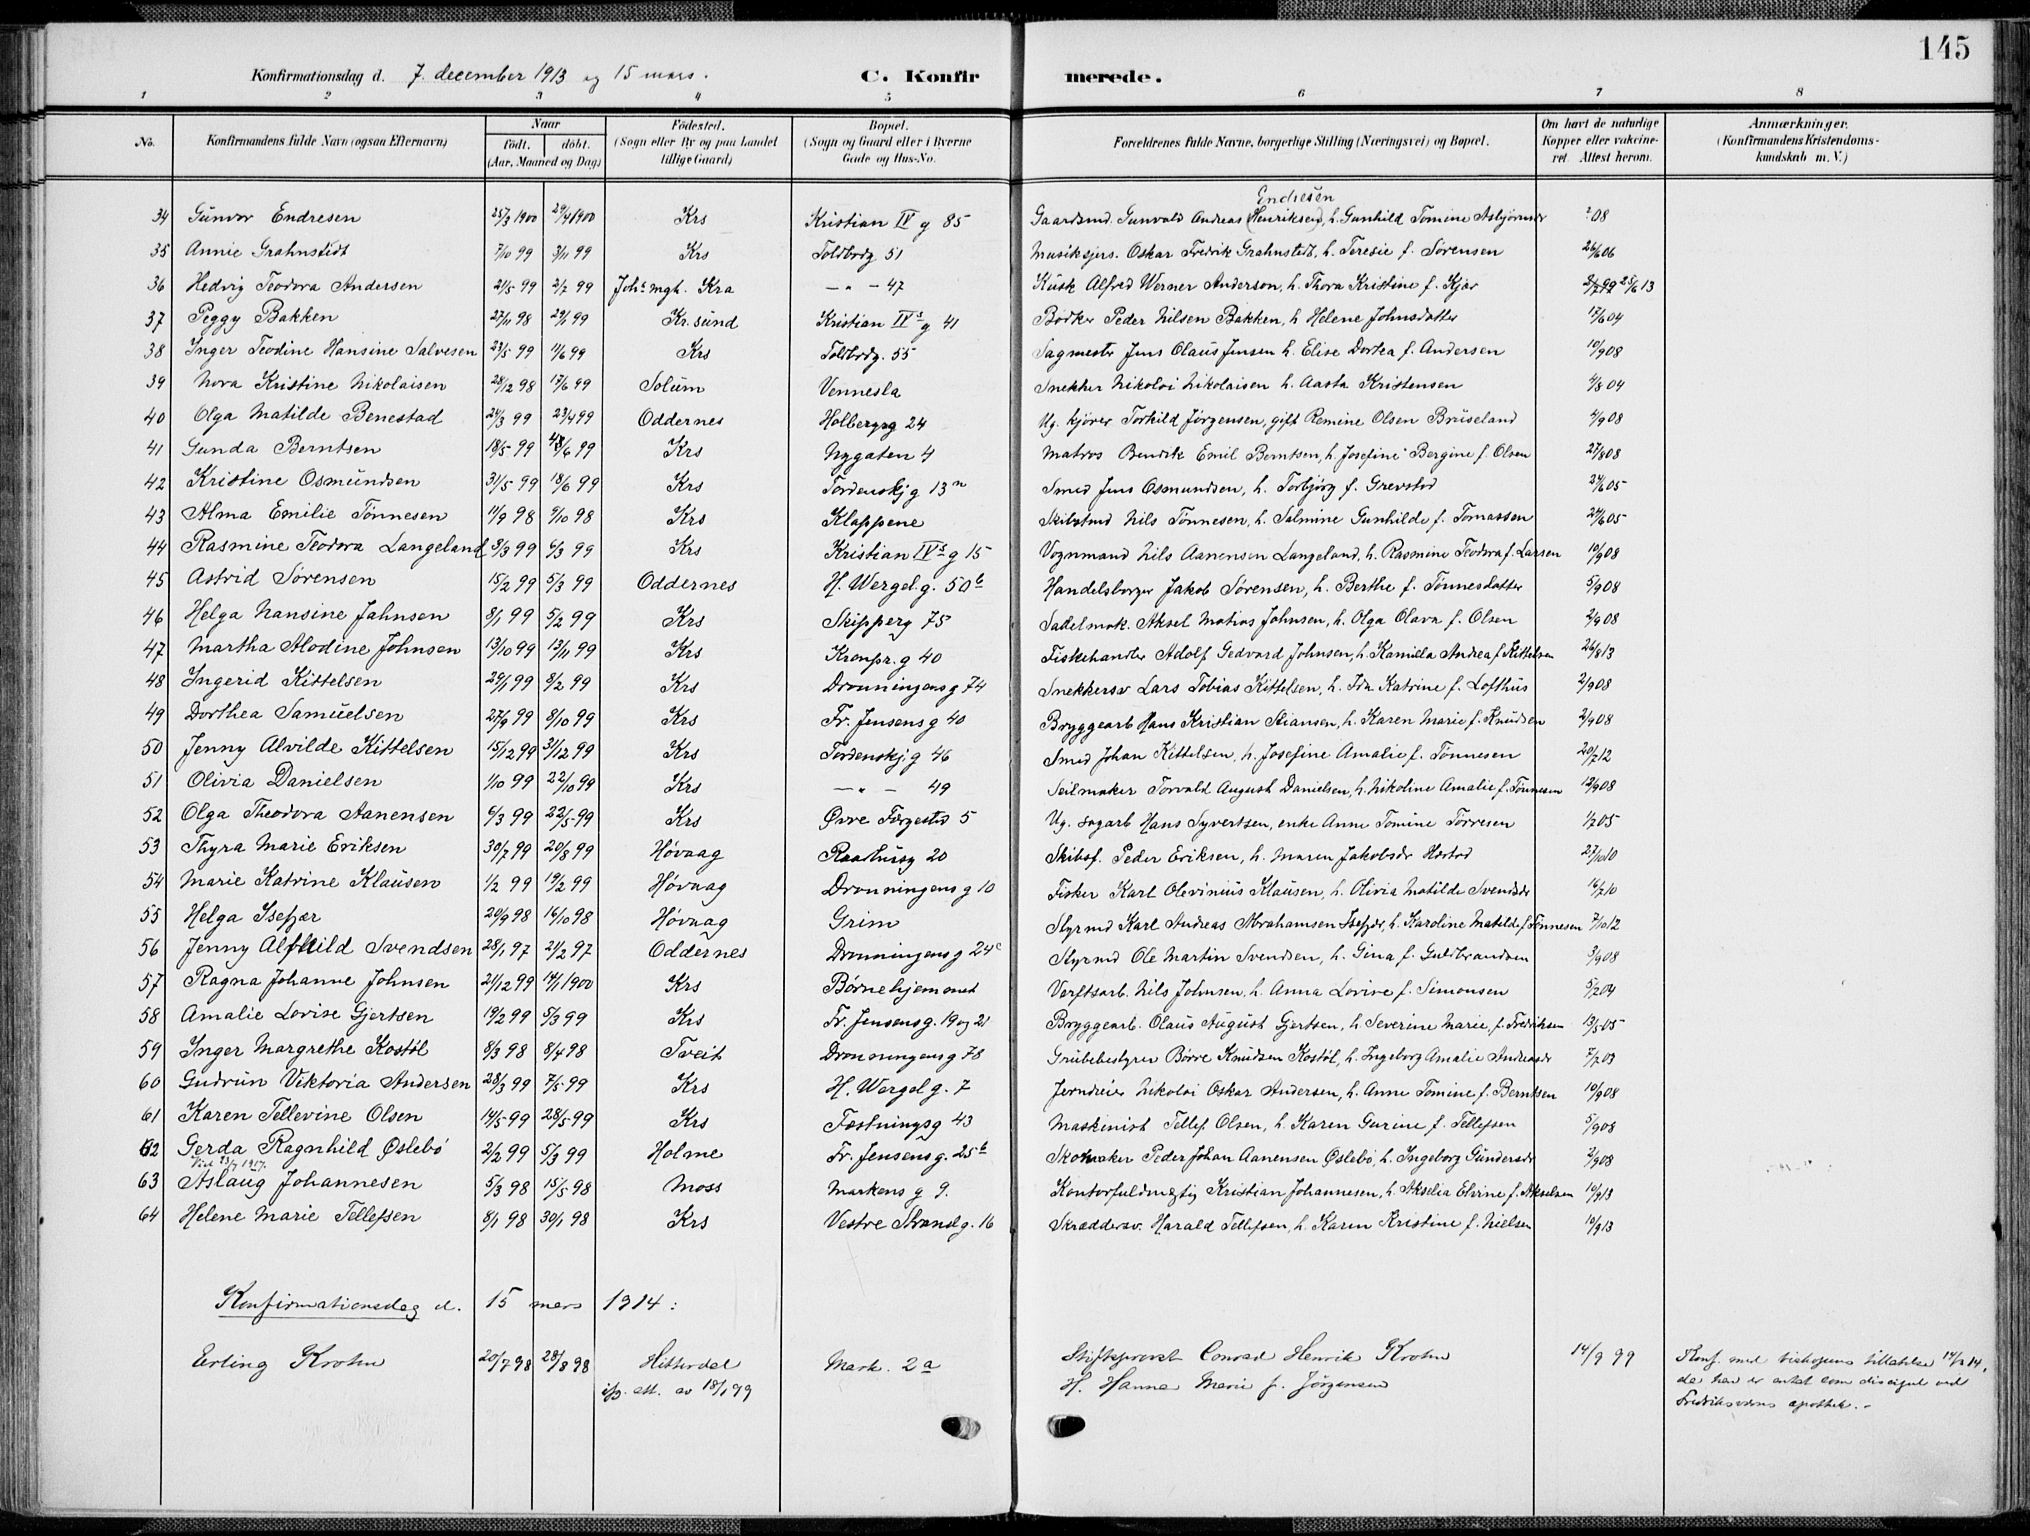 145
Konfirmationsdag d. 7. december 1913 og 15 mars. C. Konfirmerede.
1 2 3 4 5 6 7 8
No. Konfirmandens fulde Navn (ogsaa Efternavn) Naar født. døbt. (Aar, Maaned og Dag) Fødested. (Sogn eller By og paa Landet tillige Gaard) Bopæl. (Sogn og Gaard eller i Byerne Gade og Hus-No. Forældrenes fulde Navne, borgerlige Stilling (Næringsvei) og Bopæl. Om havt de naturlige Kopper eller vakcineret. Attest herom. Anmærkninger. (Konfirmandens Kristendomskundskab m. V.)
Endresen
34 Gunvor Endresen 25/3 1900 29/4 1900 Krs Kristian IV g 85 Gaardsmd. Gunvald Andreas (Henriksen), h. Gunhild Tomine Asbjørnsdr 08
35 Annie Grahnstedt 7/10 99 3/11 99 Krs Toldbodg 51 Musiksjers. Oskar Fredrik Grahnstedt, h. Teresie f. Sørensen 26/6 06
36 Hedvig Teodora Andersen 21/5 99 2/7 99 Johs mgh. Kra — " — 47 Kusk Alfred Werner Anderson, h. Thora Kristine f. Kjær 25/6 13
37 Peggy Bakken 27/11 98 29/1 99 Kr.sund Kristian IVs g 41 Bødker Peder Nilsen Bakken, h Helene Johnsdatter 15/6 04
38 Inger Teodine Hansine Salvesen 23/5 99 11/6 99 Krs Toldbodg. 55 Sagmester Jens Olaus Jensen h. Elise Dortea f. Andersen 10/9 08
39 Nora Kristine Nikolaisen 28/12 98 17/6 99 Solum Vennesla Snekker Nikolai Nikolaisen h. Aasta Kristensen 4/8 04
40 Olga Matilde Benestad 24/3 99 23/4 99 Oddernes Holbergsg 24 Ug. kjører Torkild Jørgensen, gift Remine Olsen Bruseland 4/9 08
41 Gunda Berntsen 18/5 99 18/6 99 Krs Nygaten 4 Matros Bendik Emil Berntsen, h. Josefine Bergine f. Olsen 27/8 08
42 Kristine Osmundsen 31/5 99 18/6 99 Krs Tordenskj g 13 Smed Jens Osmundsen, h. Torbjørg f. Grevstad 24/6 05
43 Alma Emilie Tønnesen 11/9 98 9/10 98 Krs Klappene Skibstmd Nils Tønnesen, h. Salmine Gunhilde f. Tomassen 24/6 05
44 Rasmine Teodora Langeland 3/3 99 6/3 99 Krs Kristian IVs g 15 Vognmand Nils Aanensen Langeland, h. Rasmine Teodora f. Larsen 10/9 08
45 Astrid Sørensen 15/2 99 5/3 99 Oddernes H. Wergel. g. 50b Handelsborger Jakob Sørensen, h. Berthe f. Tønnesdatter 5/9 08
46 Helga Nansine Jahnsen 8/1 99 5/2 99 Krs Skipperg 75 Sadelmak. Aksel Matias Jahnsen, h. Olga Olava f. Olsen 2/9 08
47 Martha Alodine Johnsen 13/10 99 13/11 99 Krs Kronpr. g 40 Fiskehandler Adolf Gedvard Johnsen, h. Kamilla Andrea f. Kittelsen 26/8 13
48 Ingerid Kittelsen 29/1 99 8/2 99 Krs Dronningens g 74 Snekkersv Lars Tobias Kittelsen, h. Ida Katrine f. Lofthus 2/9 08
49 Dorthea Samuelsen 27/9 99 8/10 99 Krs Fr. Jensens g 40 Bryggearb Hans Kristian Stiansen, h. Karen Marie f. Knudsen 2/9 08
50 Jenny Alvilde Kittelsen 15/12 99 31/12 99 Krs Tordenskj. g 46 Smed Johan Kittelsen, h. Josefine Amalie f. Tønnesen 20/7 12
51 Olivia Danielsen 1/10 99 22/10 99 Krs — " — 49 Seilmaker Torvald August Danielsen, h. Nikoline Amalie f. Tønnesen 12/9 08
52 Olga Theodora Aanensen 6/3 99 22/5 99 Krs Øvre Torgested 5 Ug. sagarb Hans Syvertsen, enke Anne Tomine Torresen 1/7 05
53 Thyra Marie Eriksen 30/7 99 20/8 99 Høvaag Raadhusg 20 Skibsf. Peder Eriksen, h. Maren Jakobsdr Hæstad 27/10 10
54 Marie Katrine Klausen 1/2 99 19/2 99 Høvaag Dronningens g 10 Fisker Karl Olevinius Klausen, h. Olivia Matilde Svendsdr 16/7 10
55 Helga Isefjær 20/9 98 16/10 98 Høvaag Grim Styrmd Karl Andreas Abrahamsen Isefjær, h. Karoline Matilde f. Tønnesen 7/10 12
56 Jenny Alfhild Svendsen 28/1 97 21/2 97 Oddernes Dronningens g 24c Styrmd Ole Martin Svendsen, h. Gina f. Guldbrandsen 3/9 08
57 Ragna Johanne Johnsen 21/12 99 14/1 1900 Krs Børnehjemmet Verftsarb. Nils Johnsen, h. Anna Lovise f. Simonsen 5/2 04
58 Amalie Lovise Gjertsen 19/2 99 5/3 99 Krs Fr. Jensens g. 19 og 21 Bryggearb. Olaus August Gjertsen, h. Severine Marie, f. Fredriksen 13/5 05
59 Inger Margrethe Kostøl 8/3 98 8/4 98 Tveit Dronningens g 78 Grubebestyrer Børre Knudsen Kostøl, h. Ingeborg Amalie Andreasdr 7/7 03
60 Gudrun Viktoria Andersen 28/3 99 7/5 99 Krs H. Wergel g. 7 Jerndreier Nikolai Oskar Andersen, h. Anne Tomine f. Berntsen 10/9 08
61 Karen Tellevine Olsen 14/5 99 28/5 99 Krs Fæstningsg 43 Maskinist Tellef Olsen, h. Karen Gurine f. Tellefsen 5/9 08
62 Gerda Ragnhild Øslebø 2/2 99 5/3 99 Holme Fr. Jensens g. 25b Skomaker Peder Johan Aanensen Øslebø, h. Ingeborg Gundersdr 2/9 08
Viet 23/7 1917.
63 Aslaug Johannesen 5/3 98 15/5 98 Moss Markens g 9. Kontorfuldmægtig Kristian Johannesen, h. Akselia Elvine f. Akselsen 10/9 13
64 Helene Marie Tellefsen 8/1 98 30/1 98 Krs Vestre Strandg. 16 Skræddersv. Harald Tellefsen, h. Karen Kristine f. Nielsen 10/9 13
Konfirmationsdag d. 15 mars 1914:
Erling Krohn 20/7 98 28/8 98 Hitterdal Mark. 2a Stiftsprovst Conrad Henrik Krohn 14/9 99 Konf. med biskopens tillatelse 14/3 14,
iflg. att. av 18/1 99 H. Hanna Marie f. Jørgensen da han er antat som discipel ved
Fredriksværns apothek. -